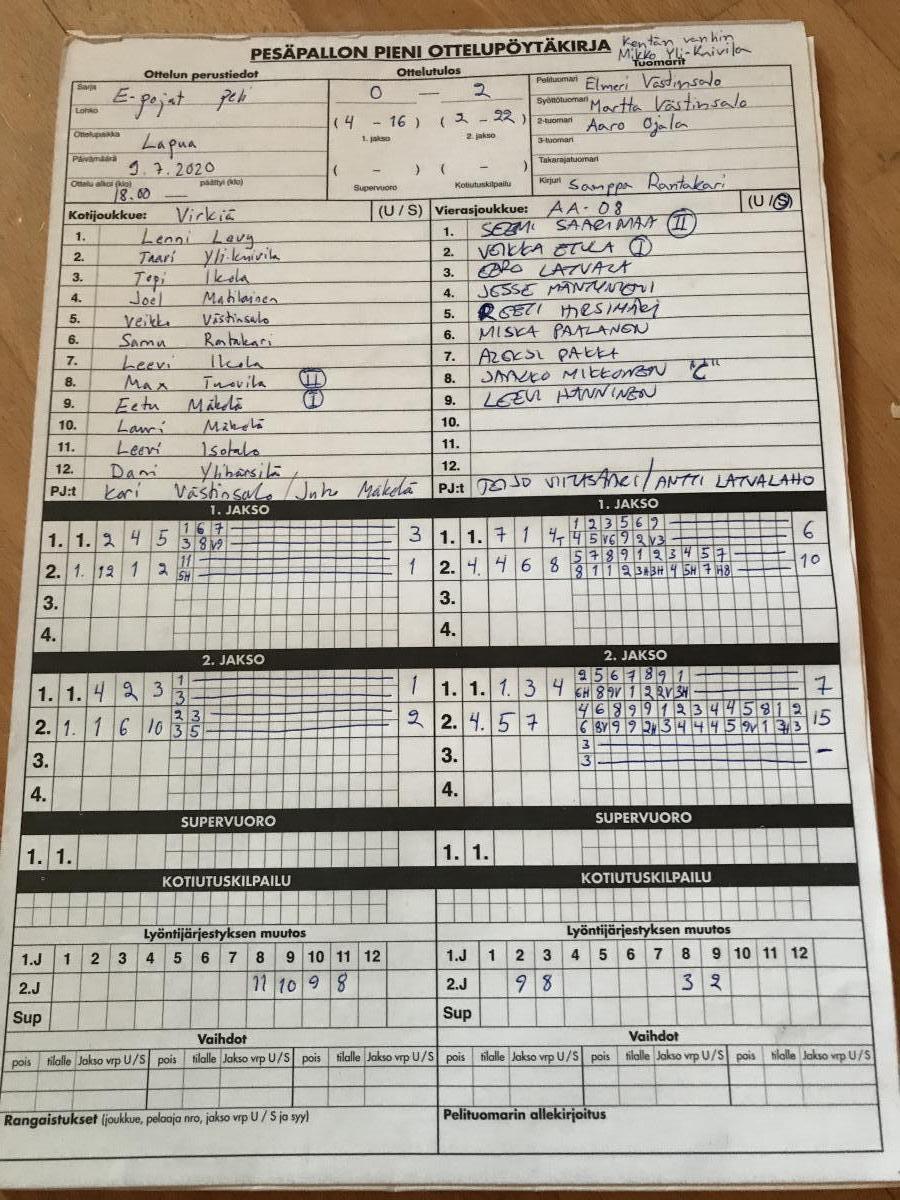 PESÄPALLON PIENI OTTELUPÖYTÄKIRJA
Kentän vanhin
Mikko Yli-Knivila
Ottelun perustiedot
Ottelutulos
Tuomarit
Sarja E-pojat peli
Lohko
Ottelupaikka Lapua
Päivämäärä 9.7.2020
Ottelu alkoi (klo) 18.00 päättyi (klo) —
0 — 2
(4 - 16) (2 - 22)
1. jakso 2. jakso
( - ) ( - )
Supervuoro Kotiutuskilpailu
Pelituomari Elmeri Västinsalo
Syöttötuomari Martta Västinsalo
2-tuomari Aaro Ojala
3-tuomari
Takarajatuomari
Kirjuri Samppa Rantakari
Kotijoukkue: Virkiä (U / S)
1. Lenni Lavy
2. Taari Yli-Knivila
3. Topi Ikola
4. Joel Matilainen
5. Veikko Västinsalo
6. Samu Rantakari
7. Leevi Ikola
8. Max Tuovila II
9. Eetu Mäkelä I
10. Lauri Mäkelä
11. Leevi Isotalo
12. Dani Ylihärsilä
PJ:t Kari Västinsalo / Juho Mäkelä
Vierasjoukkue: AA-08 (U / S)
1. SAARIMAA II
2. VEIKKA ETULA I
3. EERO LATVALA
4. JESSE MÄNTYNEMI
5. REETI HIRSIMÄKI
6. MISKA PAALANEN
7. ALEKSI PAKKA
8. JAAKKO MIKKONEN "C"
9. LEEVI HÄNNINEN
10.
11.
12.
PJ:t / ANTTI LATVALAHO
1. JAKSO
1. 1. 2 4 5 1 6 7 3
3 8 V9
2. 1. 12 1 2 11 1
5H
3.
4.
1. JAKSO
1. 1. 7 1 4T 1 2 3 5 6 9 6
4 5 V6 9 2 V3
2. 4. 4 6 8 5 7 8 9 1 2 3 4 5 7 10
8 1 1 2 3H 3H 4 5H 7 H8
3.
4.
2. JAKSO
1. 1. 4 2 3 1 1
3
2. 1. 1 6 10 2 3 2
3 5
3.
4.
2. JAKSO
1. 1. 1. 3 4 2 5 6 7 8 9 1 7
6H 8 9V 1 2 2V 3H
2. 4. 5 7 4 6 8 9 9 1 2 3 4 4 5 8 1 2 15
6 8V 9 9 2H 3 4 4 4 5 9V 1 3H 3
3. 3 –
3
4.
SUPERVUORO
1. 1.
SUPERVUORO
1. 1.
KOTIUTUSKILPAILU
KOTIUTUSKILPAILU
Lyöntijärjestyksen muutos
1.J 1 2 3 4 5 6 7 8 9 10 11 12
2.J 11 10 9 8
Sup
Lyöntijärjestyksen muutos
1.J 1 2 3 4 5 6 7 8 9 10 11 12
2.J 9 8 3 2
Sup
Vaihdot
pois tilalle Jakso vrp U / S pois tilalle Jakso vrp U / S pois tilalle Jakso vrp U / S
Vaihdot
pois tilalle Jakso vrp U / S pois tilalle Jakso vrp U / S pois tilalle Jakso vrp U / S
Rangaistukset (joukkue, pelaaja nro, jakso vrp U / S ja syy)
Pelituomarin allekirjoitus